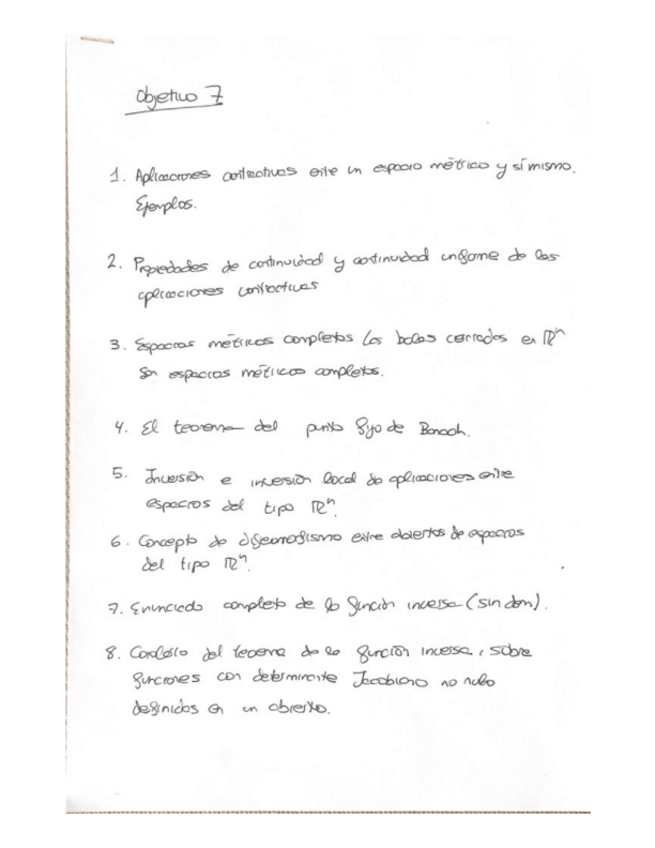 Objetivo 7
1. Aplicaciones contractivas entre un espacio métrico y sí mismo.
Ejemplos.
2. Propiedades de continuidad y continuidad uniforme de las
aplicaciones contractivas
3. Espacios métricos completos Las bolas cerradas en ℝⁿ
son espacios métricos completos.
4. El teorema del punto fijo de Banach.
5. Inversión e inversión local de aplicaciones entre
espacios del tipo ℝⁿ.
6. Concepto de difeomorfismo entre abiertos de espacios
del tipo ℝⁿ.
7. Enunciado completo de la función inversa (sin dem).
8. Corolario del teorema de la función inversa, sobre
funciones con determinante Jacobiano no nulo
definidas en un abierto.